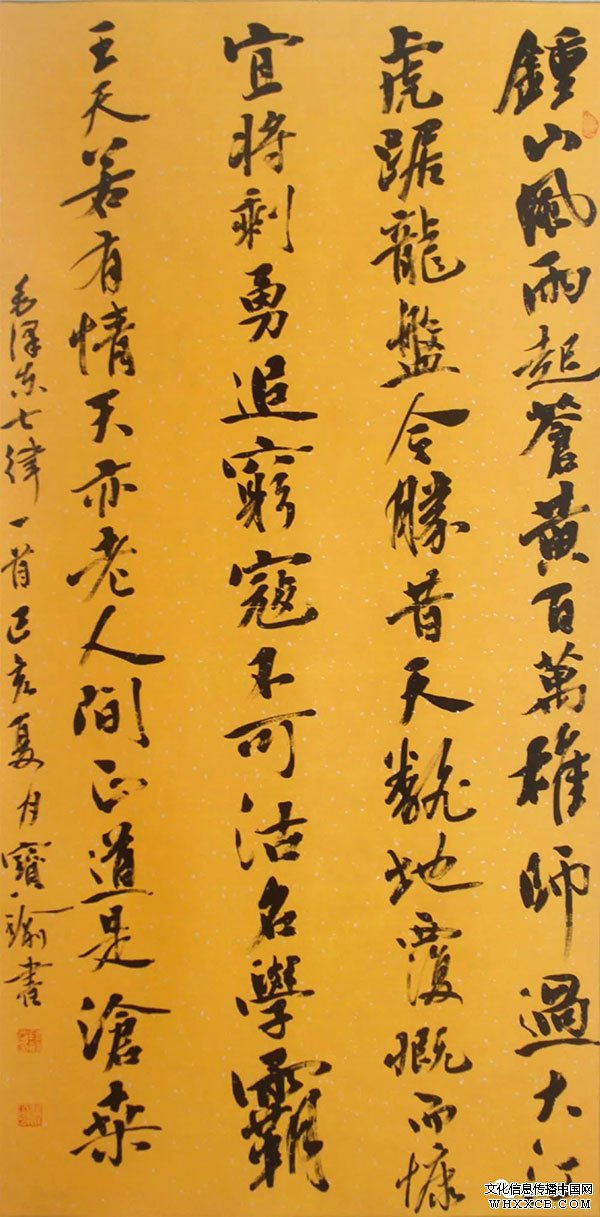 鍾山風雨起蒼黃百萬雄師過大江
虎踞龍盤今勝昔天翻地覆慨而慷
宜將剩勇追窮寇不可沽名學霸
王天若有情天亦老人間正道是滄桑
毛澤東七律一首己亥夏月寶瑜書
文化信息传播中国网
WHXXCB.COM